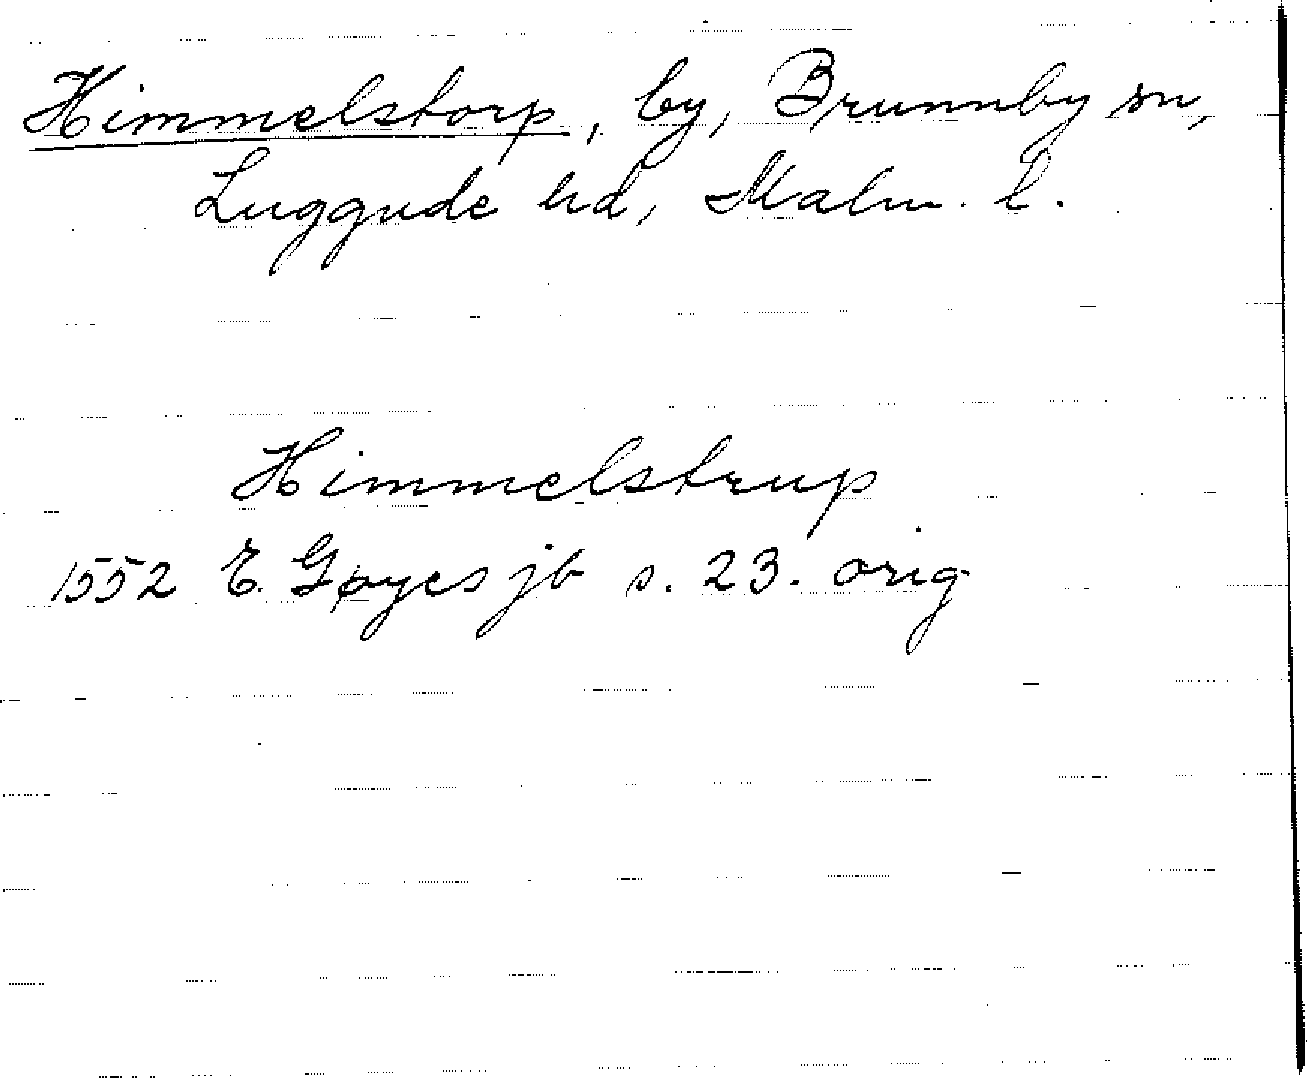 Himmelstorp, by, Brunnby sn,
Luggude hd, Malm. l.
Himmelstrup
1552 E. Gøyes jb s. 23. orig